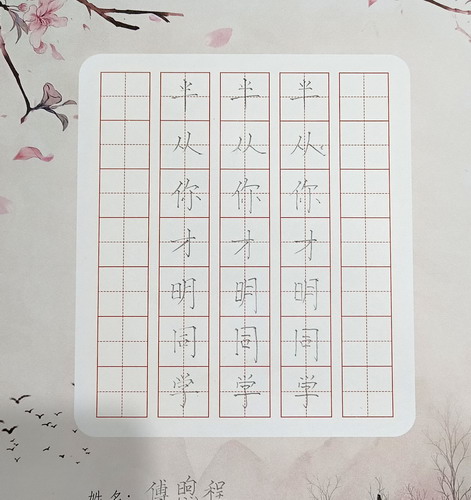 半 半 半
从 从 从
你 你 你
才 才 才
明 明 明
同 同 同
学 学 学
姓名: 傅煦程